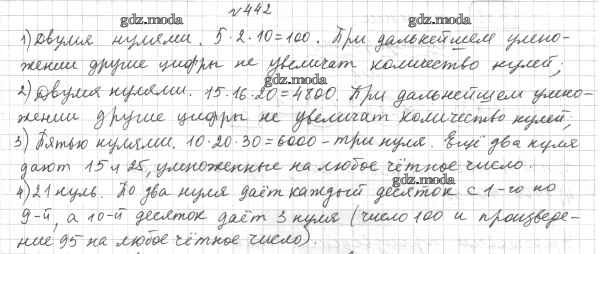 №442
gdz.moda
gdz.moda
1) Двумя нулями. 5·2·10=100. При дальнейшем умно-
жении другие цифры не увеличат количество нулей;
gdz.moda
2) Двумя нулями. 15·16·20=4800. При дальнейшем умно-
жении другие цифры не увеличат количество нулей;
gdz.moda
gdz.moda
3) Пятью нулями. 10·20·30=6000-три нуля. Ещё два нуля
дают 15 и 25, умноженные на любое чётное число.
gdz.moda
4) 21 нуль. По два нуля даёт каждый десяток с 1-го по
9-й, а 10-й десяток даёт 3 нуля (число 100 и произведе-
ние 95 на любое чётное число).
gdz.moda